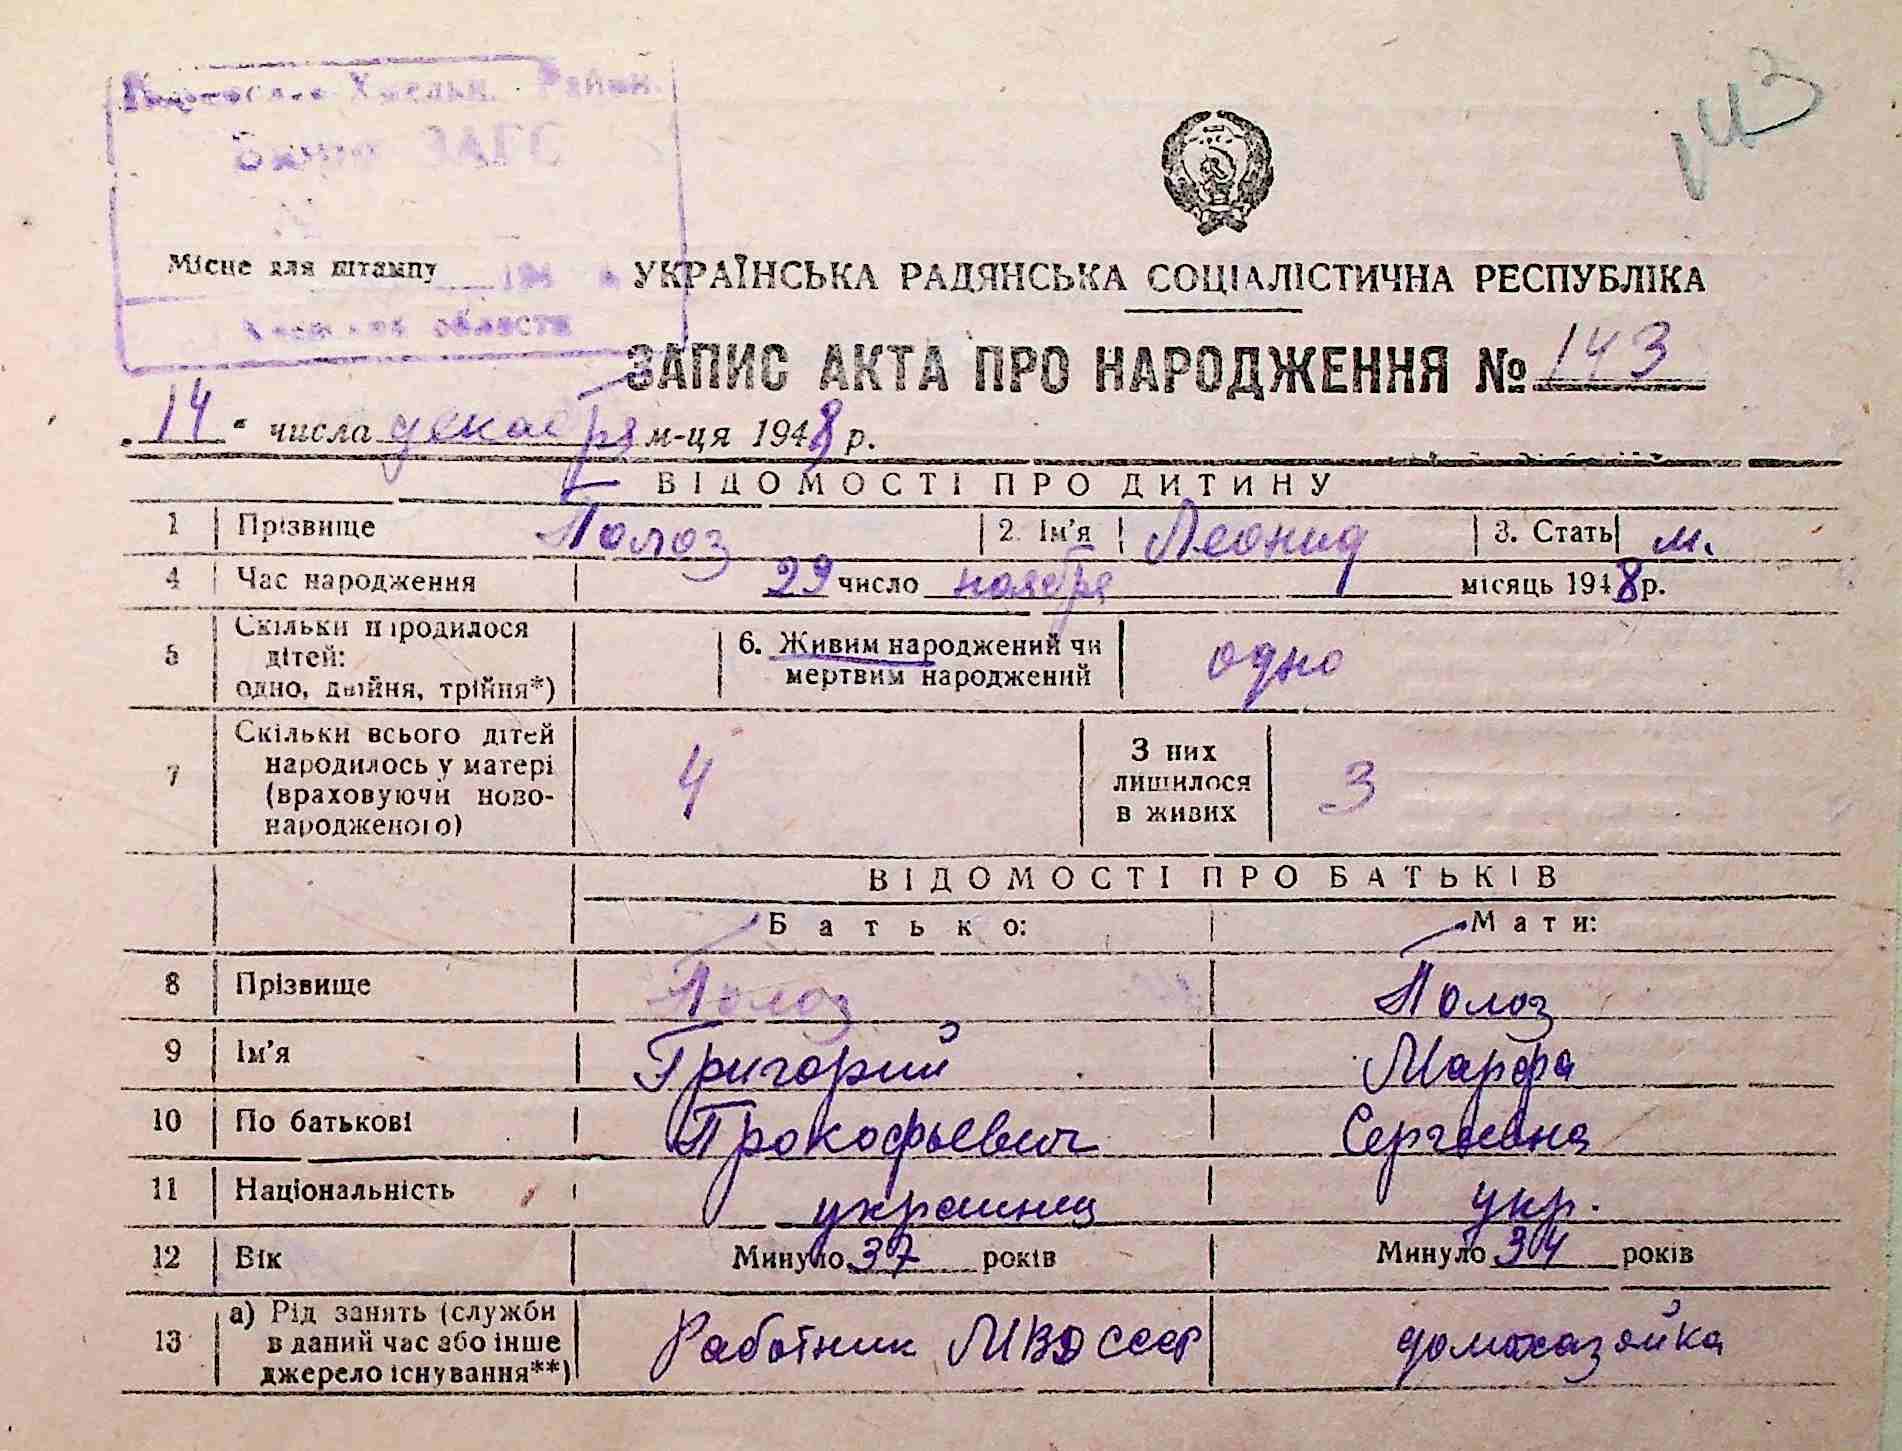 143
Хмельн. Район.
Бюро ЗАГС
Місце для штампу 194
области
УКРАЇНСЬКА РАДЯНСЬКА СОЦІАЛІСТИЧНА РЕСПУБЛІКА
ЗАПИС АКТА ПРО НАРОДЖЕННЯ № 143
„14“ числа декабря м-ця 1948 р.
ВІДОМОСТІ ПРО ДИТИНУ
1 Прізвище Полоз 2. Ім'я Леонид 3. Стать м.
4 Час народження 29 число ноября місяць 1948 р.
5 Скільки народилося дітей: одно, двійня, трійня*) 6. Живим народжений чи мертвим народжений одно
7 Скільки всього дітей народилось у матері (враховуючи новонародженого) 4 З них лишилося в живих 3
ВІДОМОСТІ ПРО БАТЬКІВ
Батько: Мати:
8 Прізвище Полоз Полоз
9 Ім'я Григорий Марфа
10 По батькові Прокофьевич Сергеевна
11 Національність украинец укр.
12 Вік Минуло 37 років Минуло 34 років
13 а) Рід занять (служби в даний час або інше джерело існування**) Работник МВД СССР домохазяйка